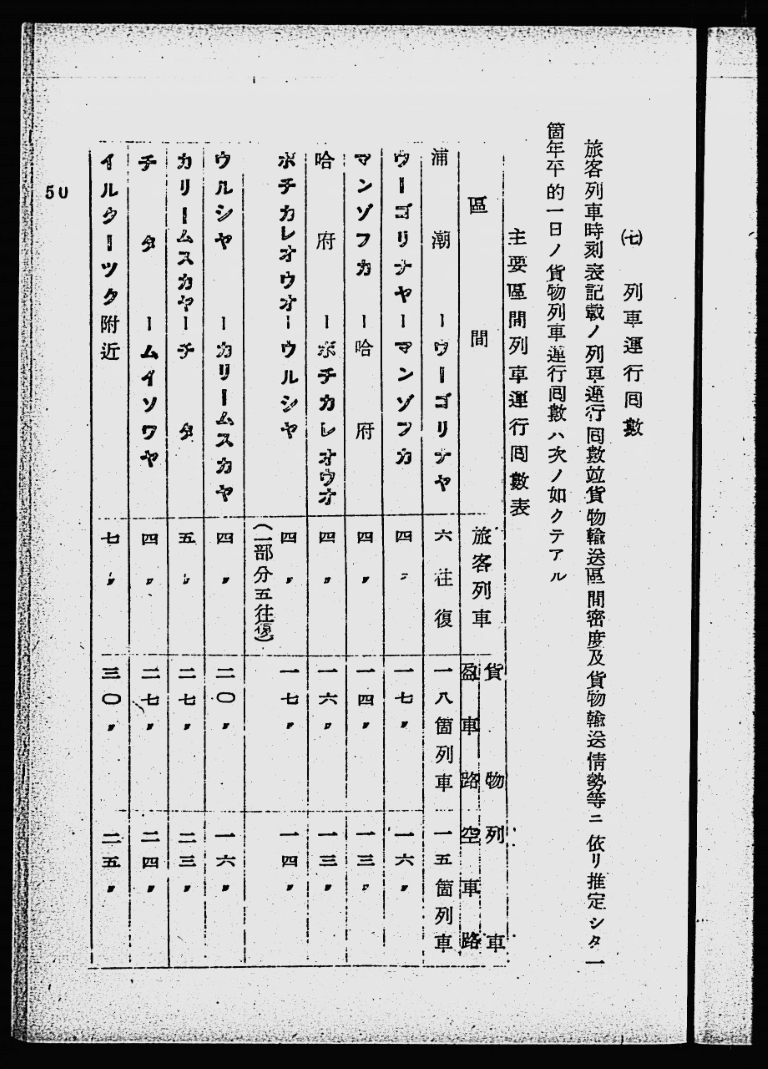 (七) 列車運行囘數
旅客列車時刻表記載ノ列車運行囘數竝貨物輸送區間密度及貨物輸送情勢等ニ依リ推定シタ一
箇年平的一日ノ貨物列車運行囘數ハ次ノ如クテアル
主要區間列車運行囘數表
區間 旅客列車 貨物列車
盈車路 空車路
浦潮ーウーゴリナヤ 六往復 一八箇列車 一五箇列車
ウーゴリナヤーマンゾフカ 四〃 一七〃 一六〃
マンゾフカー哈府 四〃 一四〃 一三〃
哈府ーボチカレオウオ 四〃 一六〃 一三〃
ボチカレオウオーウルシヤ 四〃 一七〃 一四〃
(一部分五往復)
ウルシヤーカリームスカヤ 四〃 二〇〃 一六〃
カリームスカヤーチタ 五〃 二七〃 二三〃
チタームイソワヤ 四〃 二七〃 二四〃
イルクーツク附近 七〃 三〇〃 二五〃
50